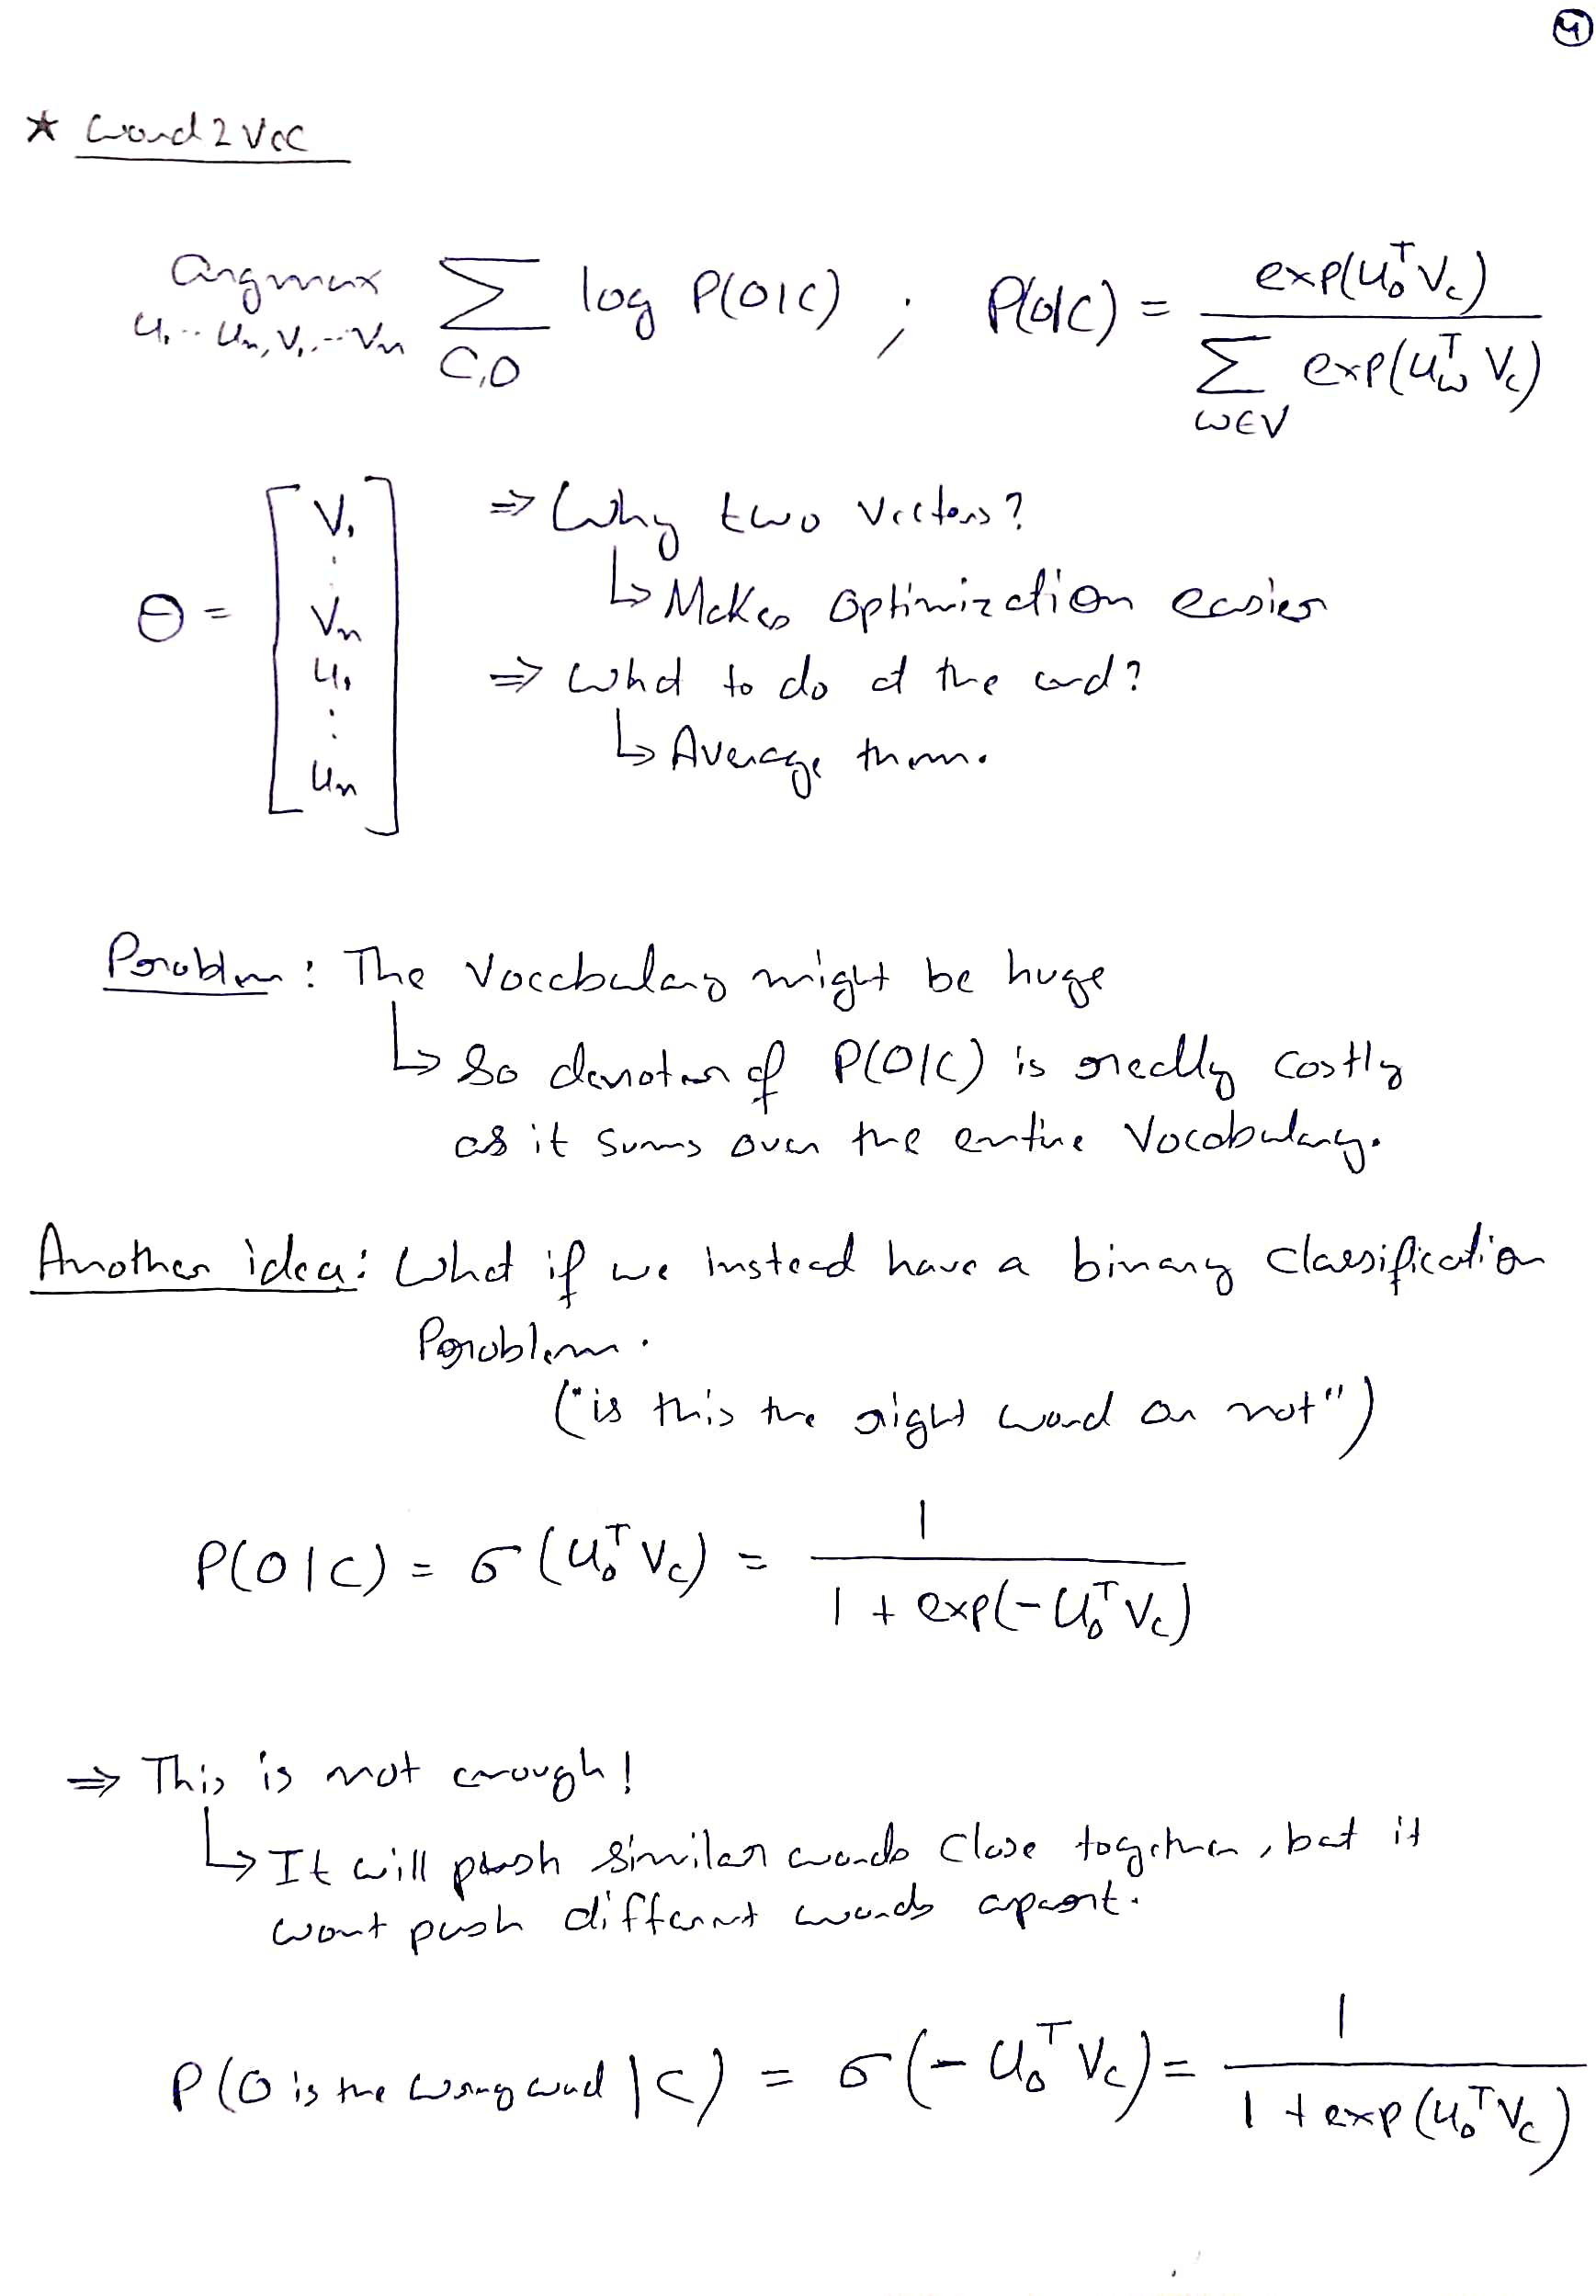 ④
* Word2Vec
argmax Σ log P(O|C) ; P(O|C) = exp(u_o^T v_c) / Σ exp(u_w^T v_c)
u₁...u_n, v₁...v_n C,O w∈V
θ = [v₁ ⋮ v_n u₁ ⋮ u_n]
⇒ Why two vectors?
↳ Makes optimization easier
⇒ What to do at the end?
↳ Average them.
Problem: The vocabulary might be huge
↳ So denoten of P(O|C) is really costly
as it sums over the entire vocabulary.
Another idea: What if we instead have a binary classification
Problem.
("is this the right word or not")
P(O|C) = σ(u_o^T v_c) = 1 / (1 + exp(-u_o^T v_c))
⇒ This is not enough!
↳ It will push similar words close together, but it
wont push different words apart.
P(O is the wrong word | C) = σ(-u_o^T v_c) = 1 / (1 + exp(u_o^T v_c))